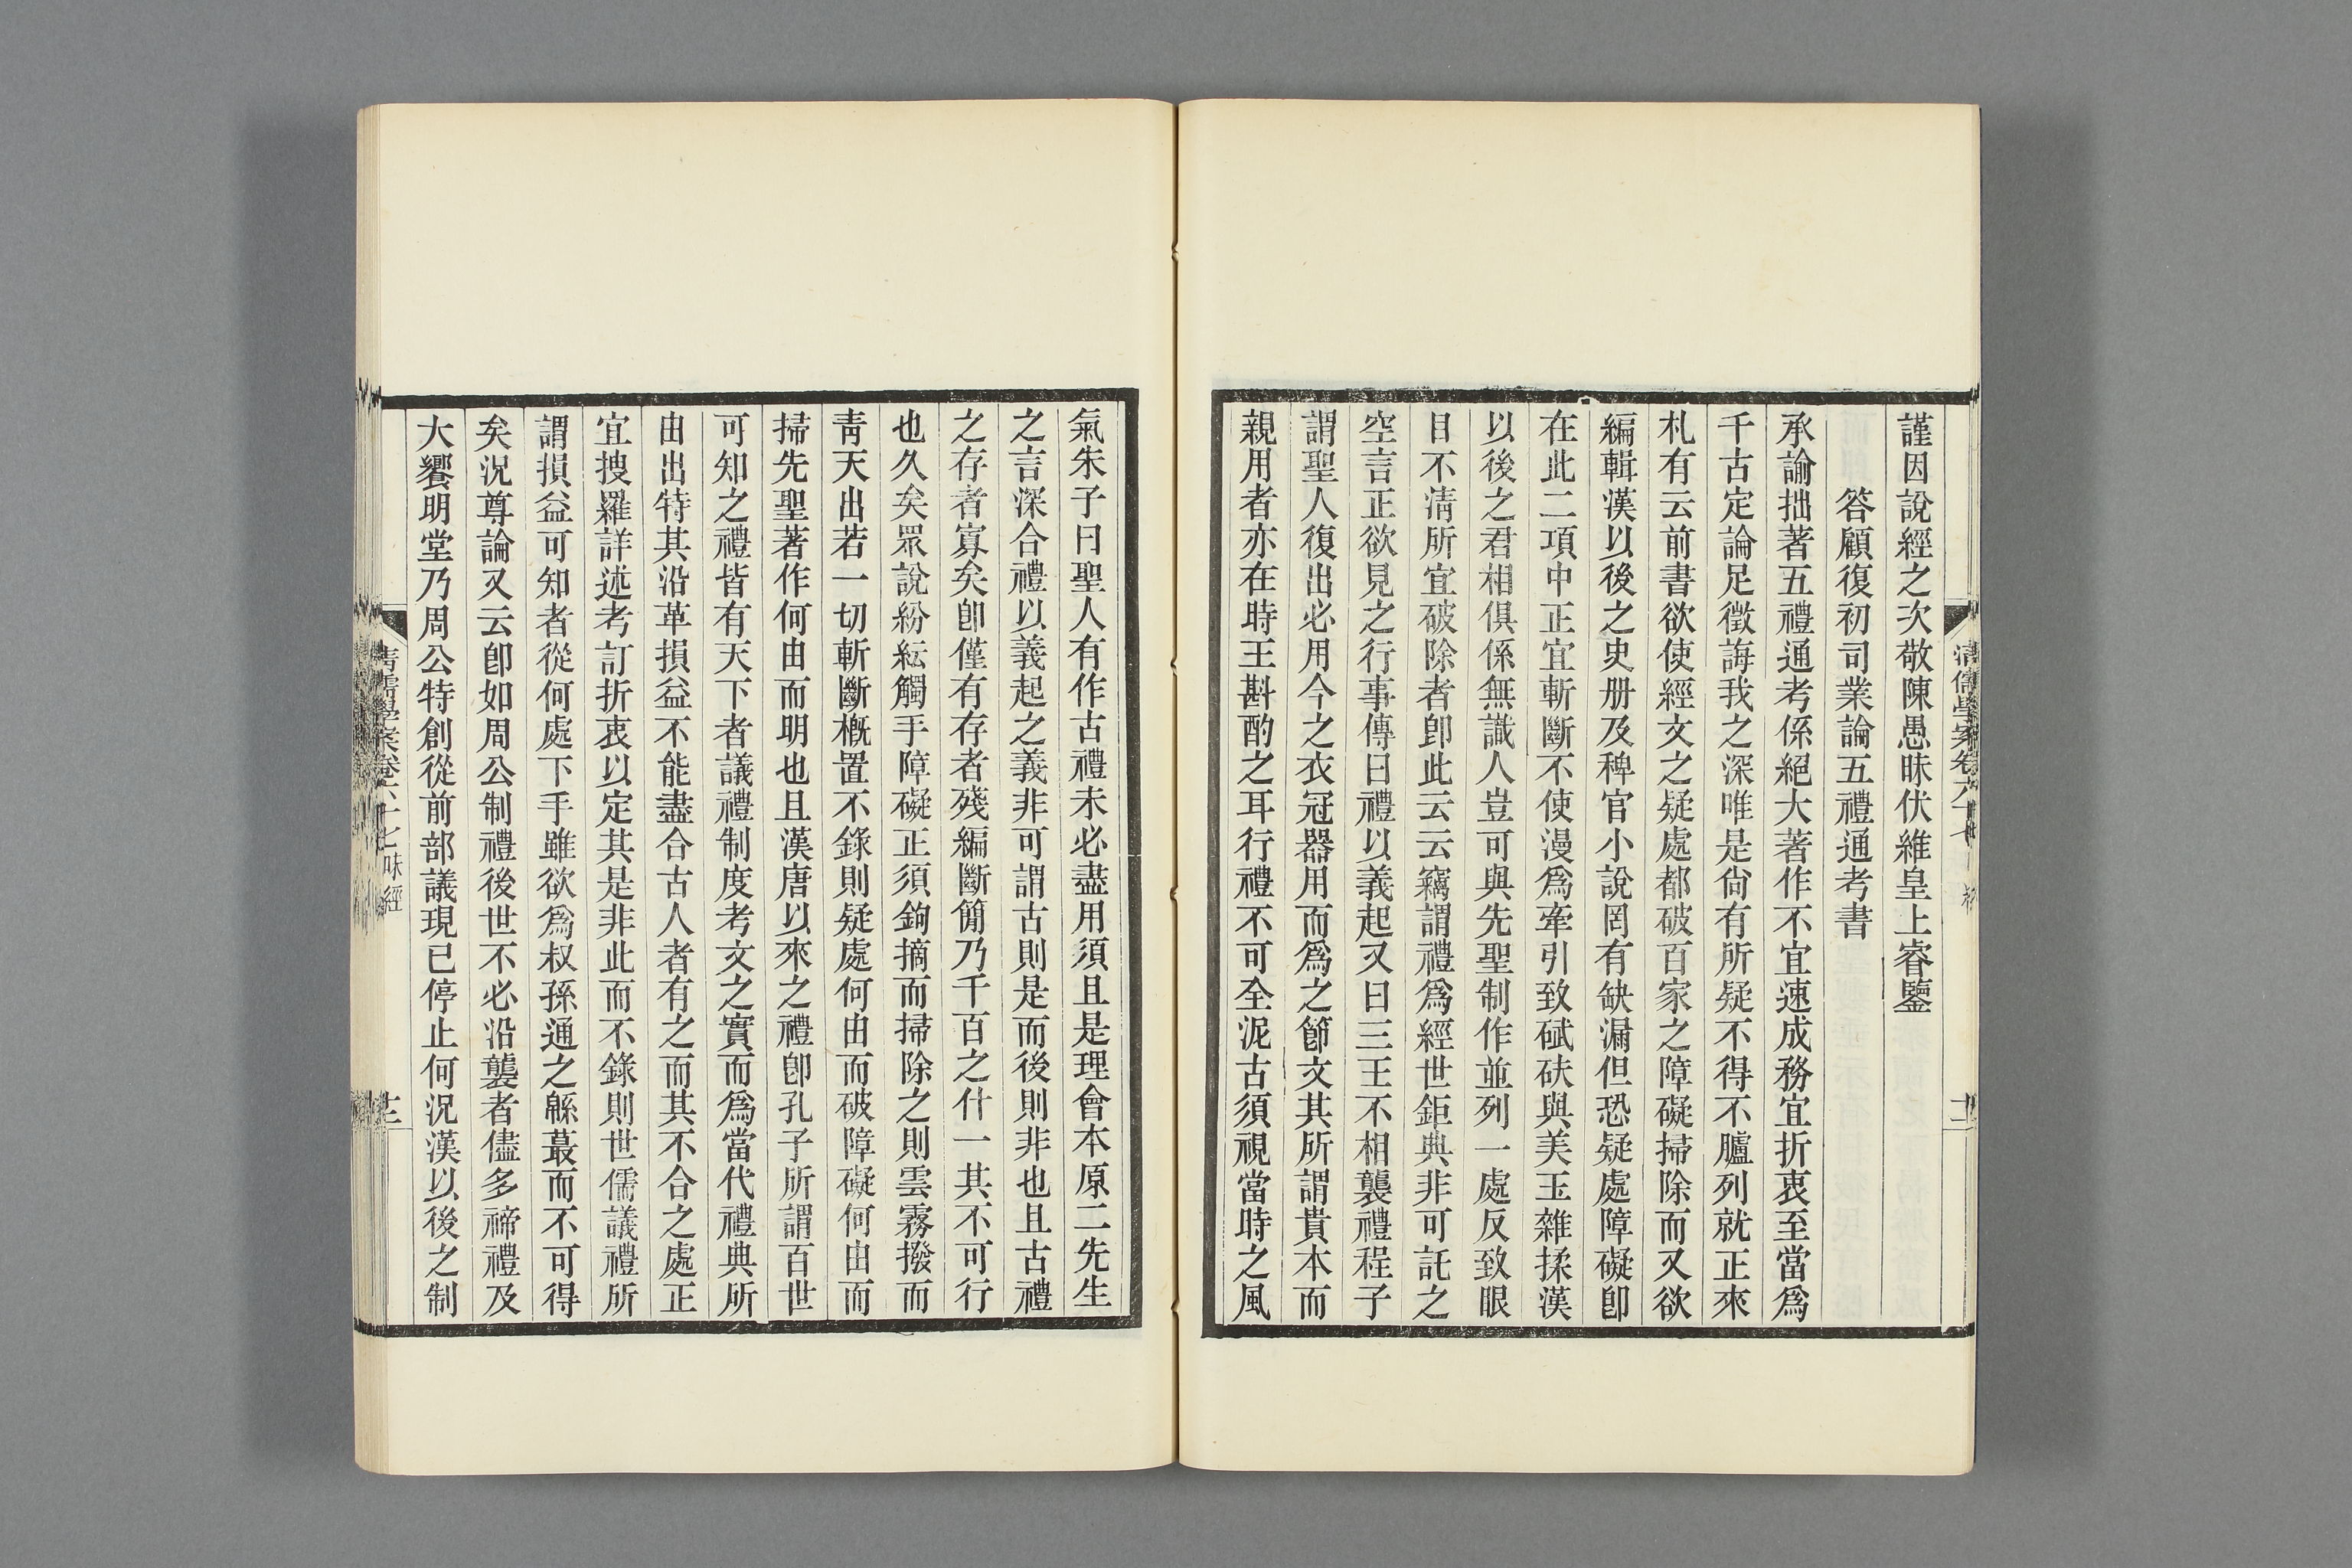 謹因說經之次敬陳愚昧伏維皇上睿鑒
答顧復初司業論五禮通考書
承諭拙著五禮通考係絕大著作不宜速成務宜折衷至當爲
千古定論足徵誨我之深唯是尙有所疑不得不臚列就正來
札有云前書欲使經文之疑處都破百家之障礙掃除而又欲
編輯漢以後之史册及稗官小說罔有缺漏但恐疑處障礙卽
在此二項中正宜斬斷不使漫爲牽引致碔砆與美玉雜揉漢
以後之君相俱係無識人豈可與先聖制作並列一處反致眼
目不淸所宜破除者卽此云云竊謂禮爲經世鉅典非可託之
空言正欲見之行事傳曰禮以義起又曰三王不相襲禮程子
謂聖人復出必用今之衣冠器用而爲之節文其所謂貴本而
親用者亦在時王斟酌之耳行禮不可全泥古須視當時之風
氣朱子曰聖人有作古禮未必盡用須且是理會本原二先生
之言深合禮以義起之義非可謂古則是而後則非也且古禮
之存者寡矣卽僅有存者殘編斷簡乃千百之什一其不可行
也久矣眾說紛紜觸手障礙正須鉤摘而掃除之則雲霧撥而
靑天出若一切斬斷槪置不錄則疑處何由而破障礙何由而
掃先聖著作何由而明也且漢唐以來之禮卽孔子所謂百世
可知之禮皆有天下者議禮制度考文之實而爲當代禮典所
由出特其沿革損益不能盡合古人者有之而其不合之處正
宜搜羅詳述考訂折衷以定其是非此而不錄則世儒議禮所
謂損益可知者從何處下手雖欲爲叔孫通之緜蕞而不可得
矣況尊論又云卽如周公制禮後世不必沿襲者儘多禘禮及
大饗明堂乃周公特創從前部議現已停止何況漢以後之制
清儒學案卷六十七 味經